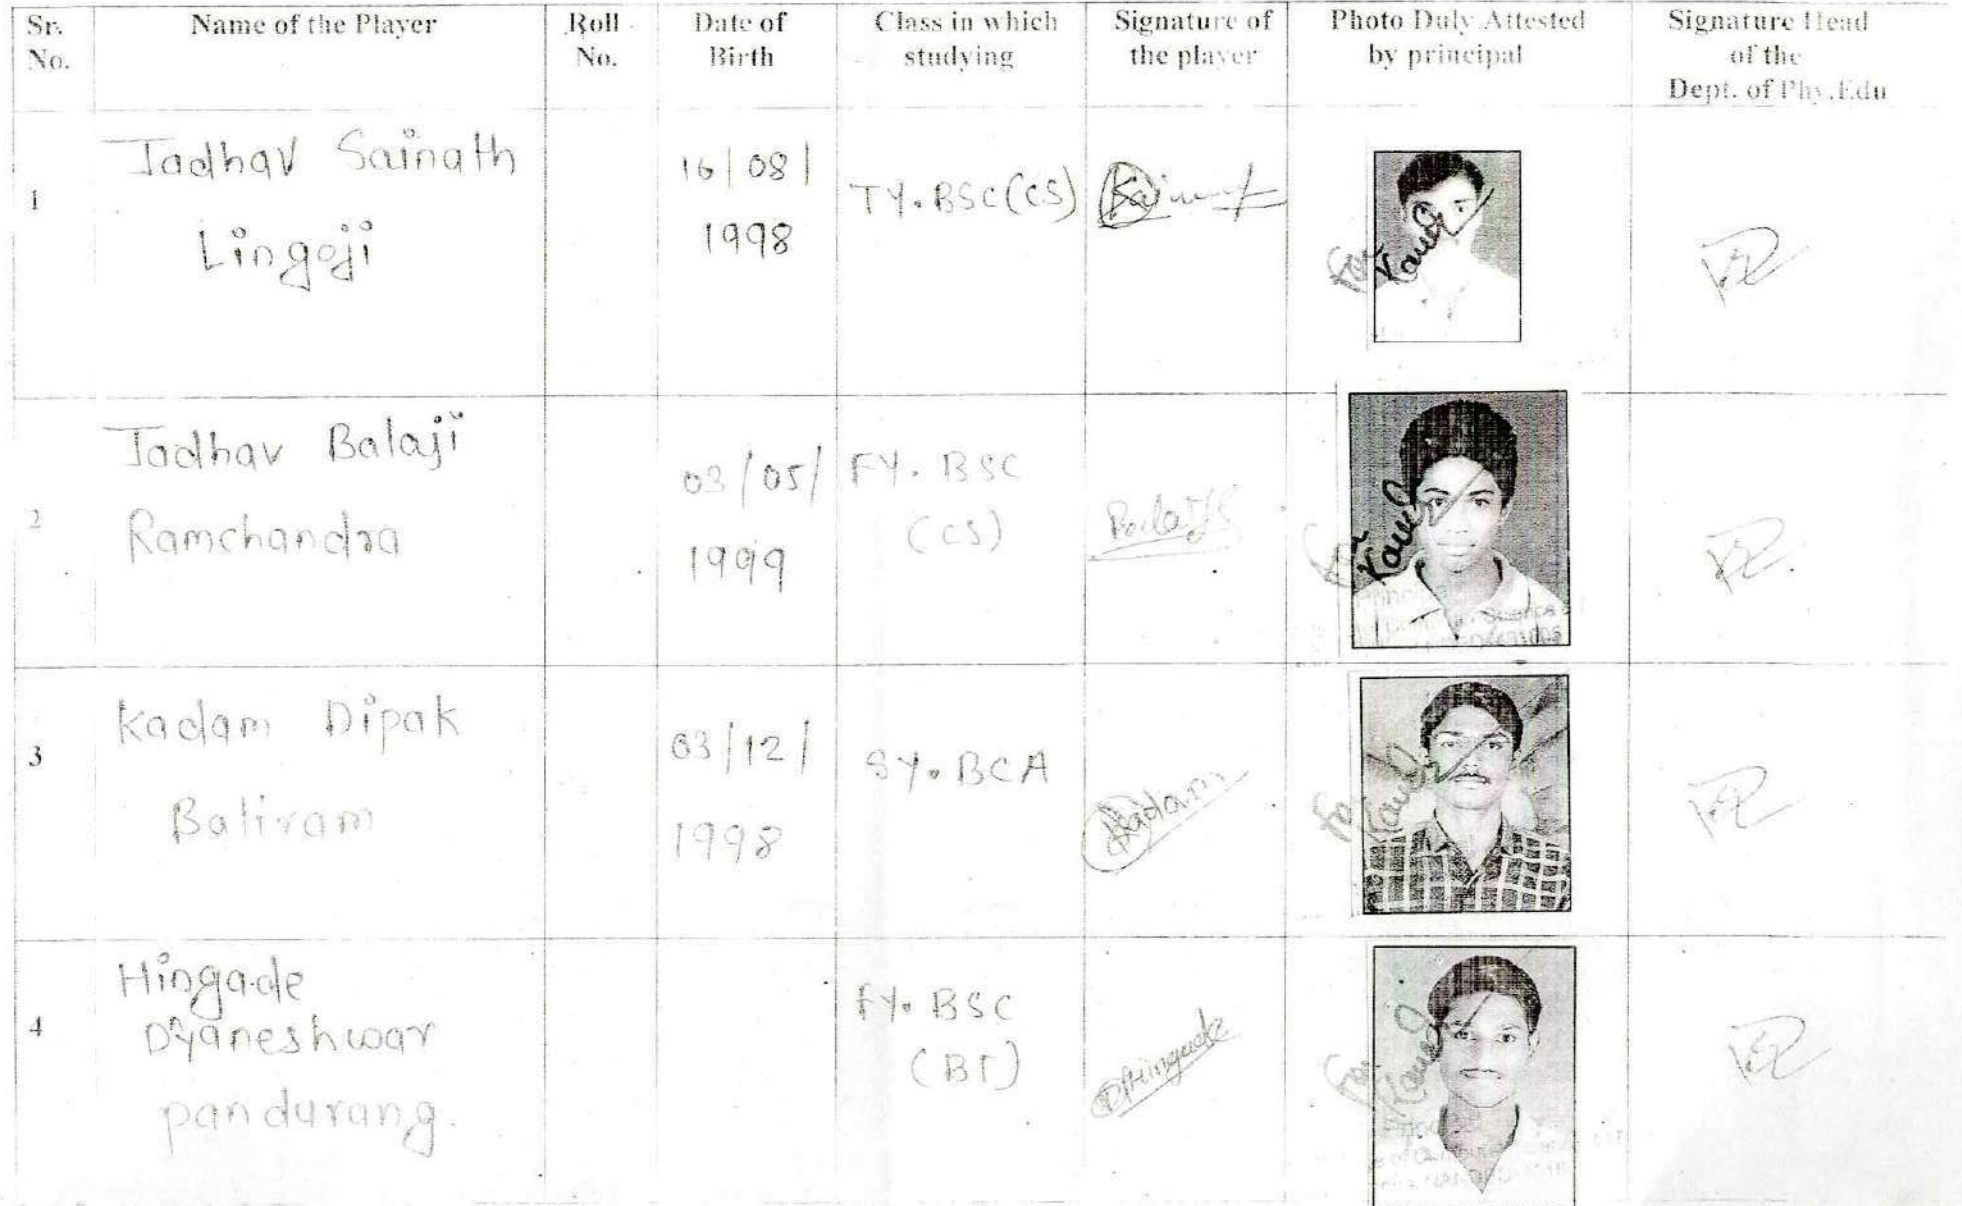 Sr. No.
Name of the Player
Roll No.
Date of Birth
Class in which studying
Signature of the player
Photo Duly Attested by principal
Signature Head of the Dept. of Phy.Edu
1
Jadhav Sainath
Lingoji
16/08/
1998
TY.BSC(CS)
For
2
Jadhav Balaji
Ramchandra
03/05/
1999
FY. BSC
(CS)
Balaji
For
3
Kadam Dipak
Baliram
03/12/
1998
SY.BCA
Kadam
For
4
Hingade
Dyaneshwar
pandurang.
FY. BSC
(BT)
DPHingade
For